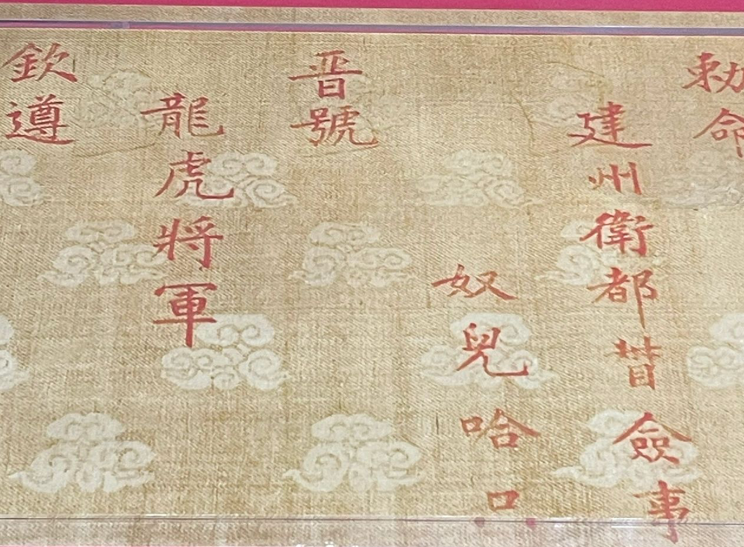 勅命
建州衛都督僉事
奴兒哈
晋號
龍虎將軍
欽遵